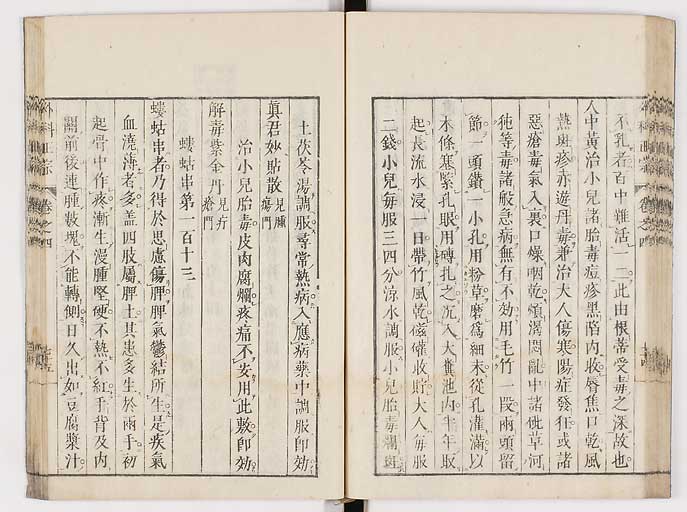 不乳者百中難活一二此由根蒂受毒之深故也
人中黃治小兒諸胎毒痘疹黑陷內收脣焦口乾風
熱斑疹赤遊丹毒兼治大人傷寒陽症發狂或諸
惡瘡毒氣入裏口燥咽乾煩渴悶亂中諸砒草河
㹠等毒諸般急病無有不効用毛竹一段兩頭留
節一頭鑽一小孔用粉草磨為細末從孔灌滿以
木條塞緊孔眼用磚扎之沉入大糞池內半年取
起長流水浸一日帶竹風乾磁罐收貯大人每服
二錢小兒每服三四分涼水調服小兒胎毒爛斑
土茯苓湯調服尋常熱病入應病藥中調服即効
真君妙貼散 見腫瘍門
治小兒胎毒皮肉腐爛疼痛不安用此敷即効
解毒紫金丹 見疔瘡門
螻蛄串第一百十三
螻蛄串者乃得於思慮傷脾脾氣鬱結所生是疾氣
血澆薄者多蓋四肢屬脾土其患多生於兩手初
起骨中作疼漸生漫腫堅硬不熱不紅手背及內
關前後連腫數塊不能轉側日久出如豆腐漿汁
外科正宗 卷之四